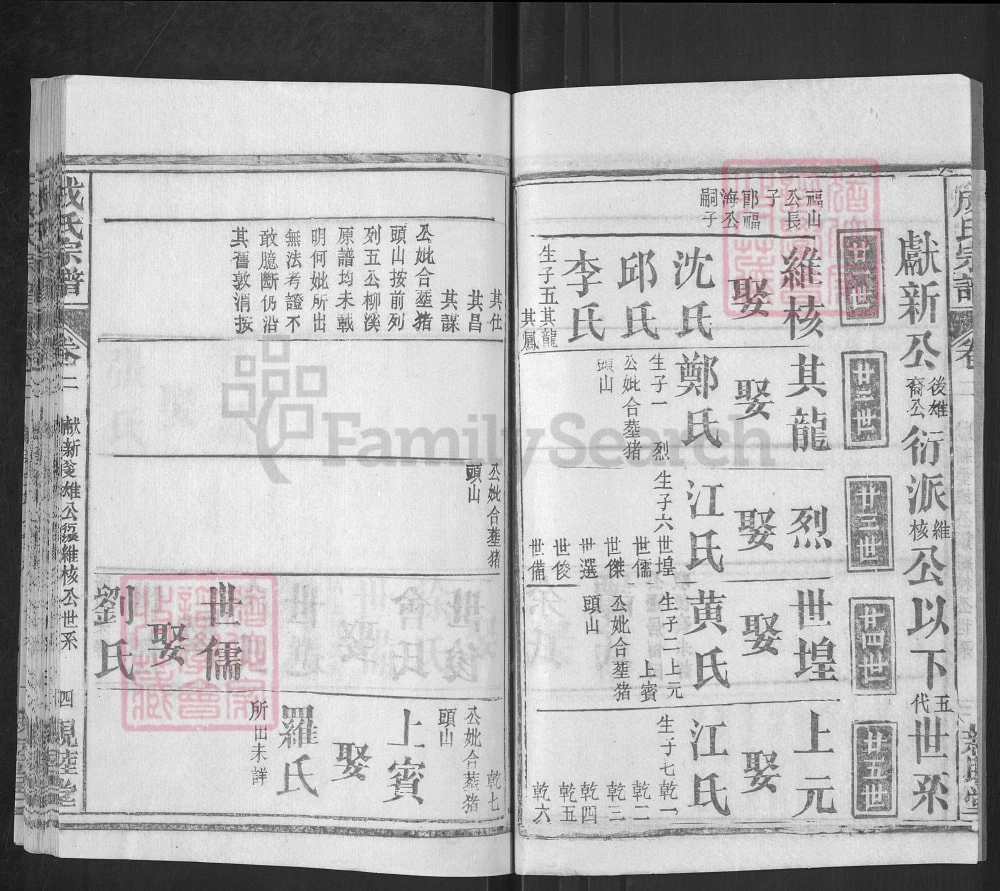 獻新公後雄裔公衍派維核公以下五代世系
廿一世
維核
福山公長子郎福海公嗣子
娶
沈氏
邱氏
李氏
生子五其龍
其鳳
其仕
其昌
其謀
公妣合塟猪
頭山按前列
列五公柳溪
原譜均未載
明何妣所出
無法考證不
敢臆斷仍沿
其舊敦消按
廿二世
其龍
娶
鄭氏
生子一烈
公妣合塟猪
頭山
廿三世
烈
娶
江氏
生子六世煌
世儒
世傑
世選
世俊
世備
公妣合塟猪
頭山
廿四世
世煌
娶
黄氏
生子二上元
上賓
公妣合塟猪
頭山
世儒
娶
劉氏
廿五世
上元
娶
江氏
生子七乾一
乾二
乾四
乾五
乾六
乾七
公妣合塟猪
頭山
上賓
娶
羅氏
所出未詳
氏宗譜
卷二
献新公雄公裔維核公世系
四
親睦堂
FamilySearch